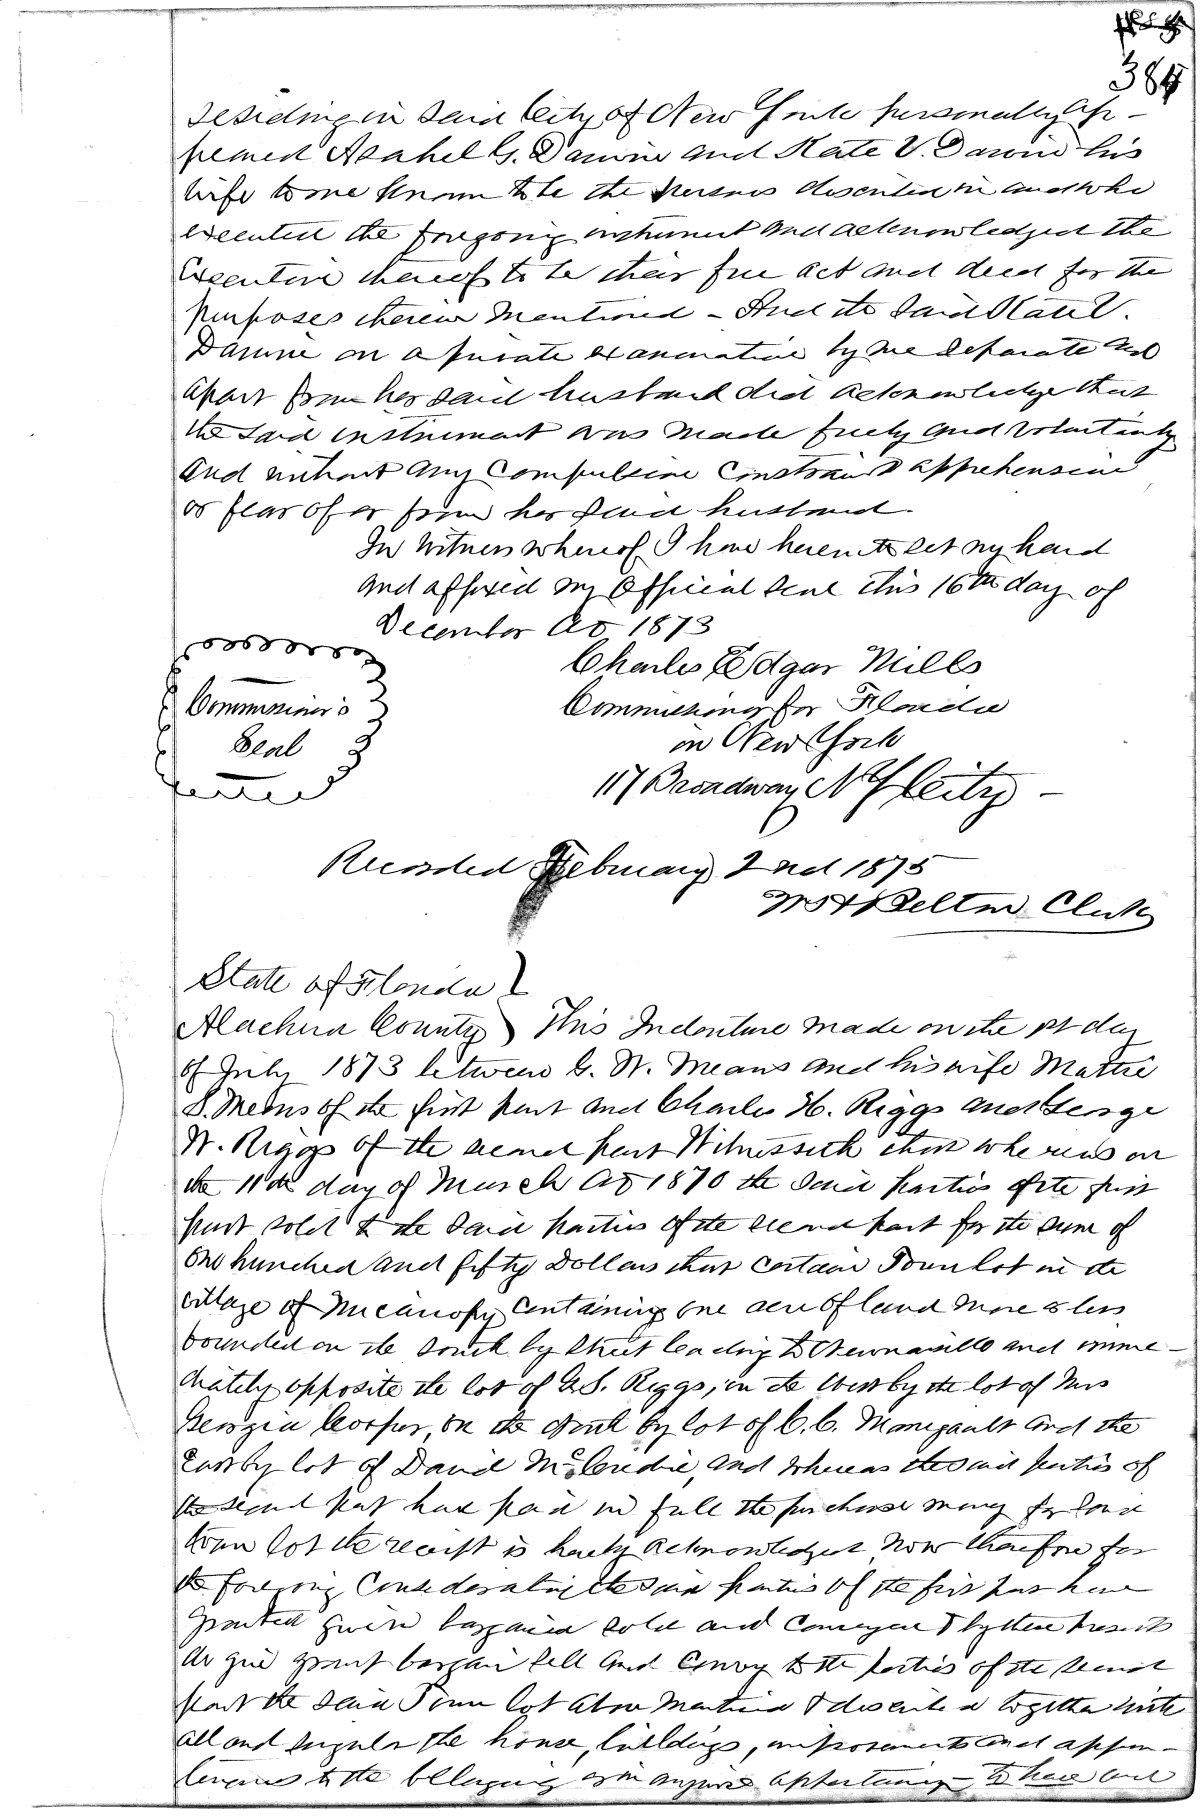 384
residing in said City of New York personally ap-
peared Asahel G. Darwin and Kate V. Darwin his
wife to me known to be the persons described in and who
executed the foregoing instrument and acknowledged the
Execution thereof to be their free act and deed for the
purposes therein mentioned - And the said Kate V.
Darwin on a private examination by me separate and
apart from her said husband did acknowledge that
the said instrument was made freely and voluntarily
and without any compulsion constraint apprehension
or fear of or from her said husband.
In Witness whereof I have hereunto set my hand
and affixed my official seal this 16th day of
December AD 1873
Charles Edgar Mills
Commissioner for Florida
in New York
117 Broadway N Y City -
Commissioner's
Seal
Recorded February 2nd 1875
Belton Clerk
State of Florida }
Alachua County } This Indenture made on the 1st day
of July 1873 between G. W. Means and his wife Mattie
S. Means of the first part and Charles H. Riggs and George
W. Riggs of the second part Witnesseth that whereas on
the 11th day of March AD 1870 the said parties of the first
part sold to the said parties of the second part for the sum of
One hundred and fifty Dollars that certain Town lot in the
village of Micanopy containing one acre of land more or less
bounded on the south by street leading to Newnansville and imme-
diately opposite the lot of G. S. Riggs, on the West by the lot of Mrs
Georgia Cooper, on the North by lot of C. C. Manigault and the
East by lot of David McCredie, and whereas the said parties of
the second part have paid in full the purchase money for said
town lot the receipt is hereby acknowledged, now therefore for
the foregoing consideration the said parties of the first part have
granted given bargained sold and conveyed & by these presents
do give grant bargain sell and convey to the parties of the second
part the said Town lot above mentioned & described together with
all and singular the house, buildings, improvements and appur-
tenances to the belonging or in anywise appertaining - to have and